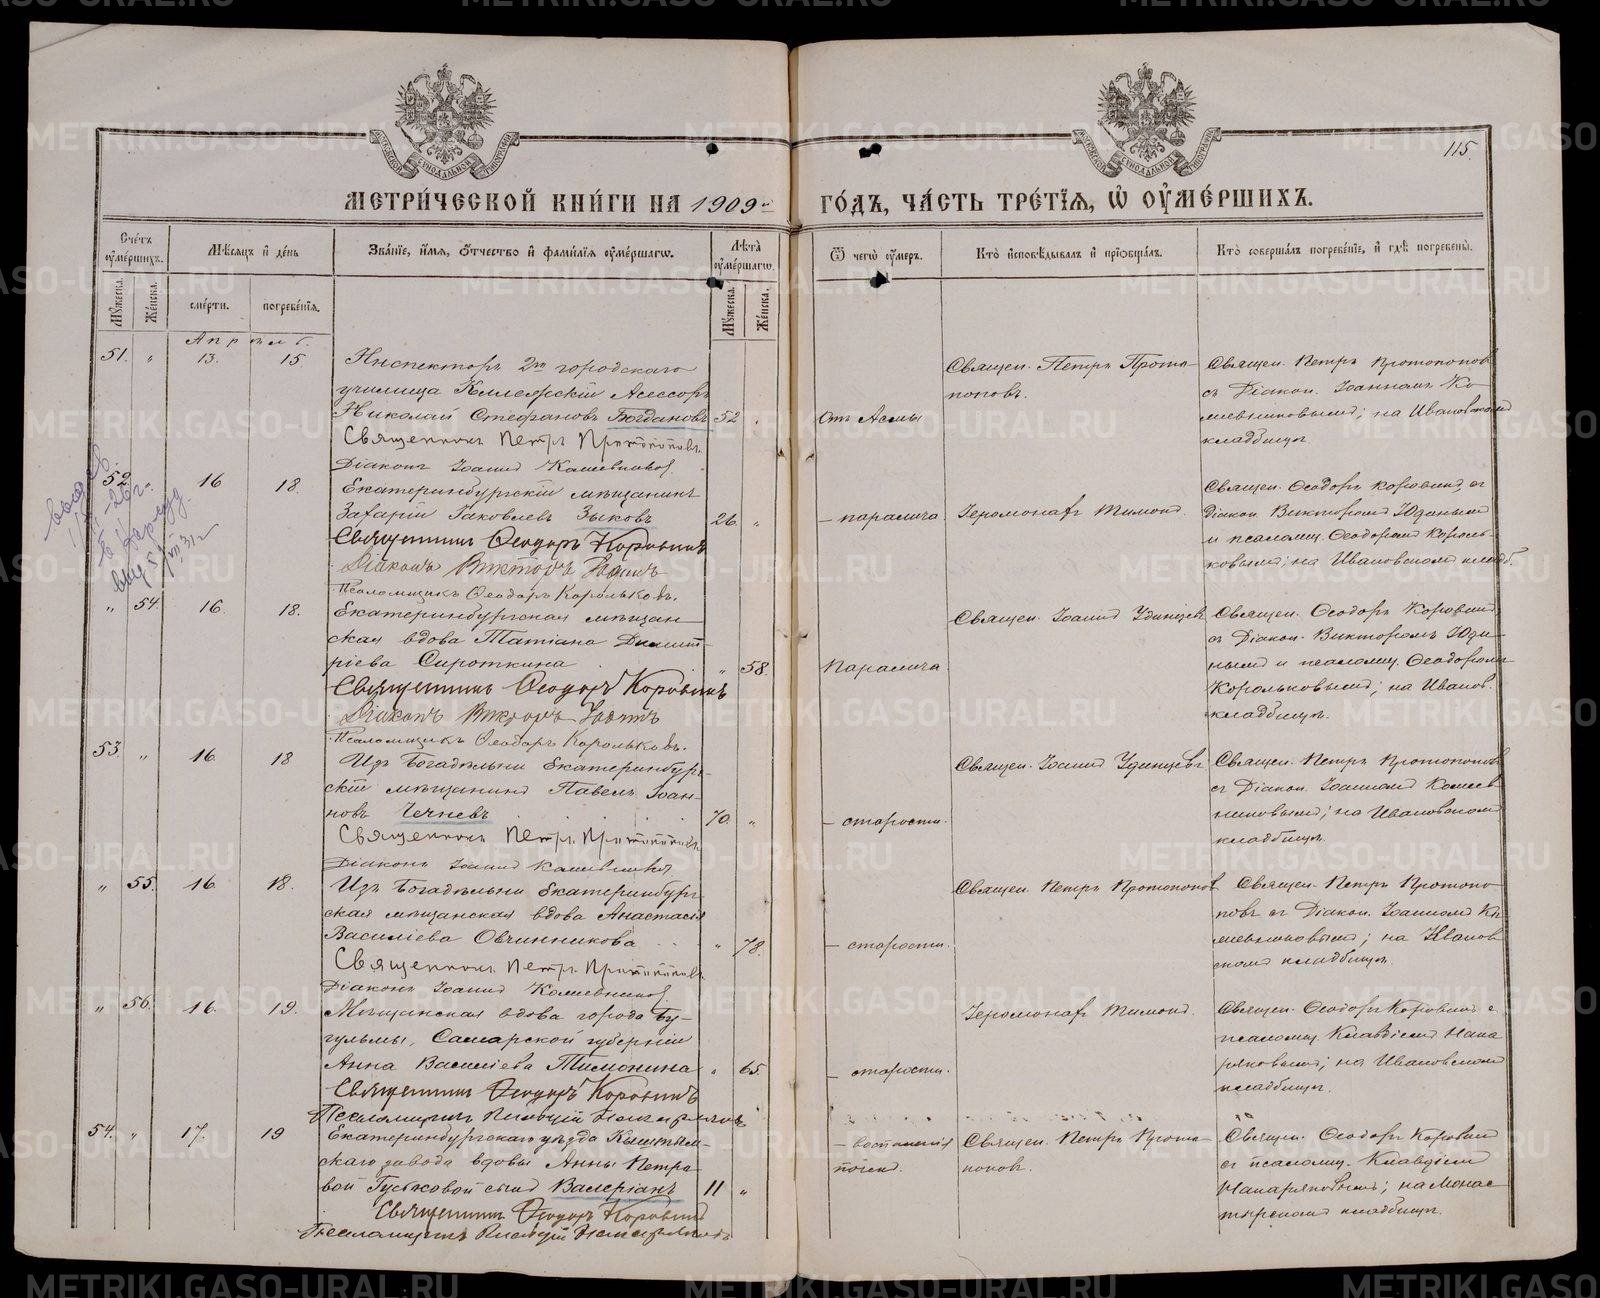 115.
МЕТРИ́ЧЕСКОЙ КНИ́ГИ НА 1909й ГО́ДЪ, ЧА́СТЬ ТРЕ́ТЇѦ, Ѽ ОУ҆МЕ́РШИХЪ.
Сче́тъ оу҆ме́ршихъ.
Мꙋ́жеска. Же́нска.
Мѣ́сѧцъ и҆ де́нь
сме́рти. погребе́нїѧ.
Зва́нїе, и҆́мѧ, ѻ҆́тчество и҆ фамі́лїѧ оу҆ме́ршагѡ.
Лѣ́та оу҆ме́ршагѡ.
Мꙋ́жеска. Же́нска.
Ѿ чегѡ̀ оу҆́меръ.
Кто̀ и҆сповѣ́дывалъ и҆ прїѡбща́лъ.
Кто̀ соверша́лъ погребе́нїе, и҆ гдѣ̀ погребены̀.
Апрѣль.
51. " 13. 15.
Инспекторъ 2го городскаго
училища Коллежскій Асессоръ
Николай Стефановъ Богдановъ 52 "
Священникъ Петръ Протопоповъ.
Діаконъ Іоаннъ Кашевниковъ.
Отъ Асмы
Священ. Петръ Прото-
поповъ.
Священ. Петръ Протопоповъ
съ Діакон. Іоанномъ Ко-
на Ивановском
кладбищѣ.
52. 16 18.
Екатеринбургскій мѣщанинъ
Захарій Іаковлевъ Зыковъ 26. "
Священникъ Ѳеодоръ Коровинъ
Діаконъ Викторъ
Псаломщикъ Ѳеодоръ Корольковъ.
– паралича
Іеромонахъ Тимонъ.
Священ. Ѳеодоръ Коровинъ, съ
Діакон. Викторомъ Юдинымъ
и псаломщ. Ѳеодоромъ Король-
ковымъ; на Ивановскомъ кладб.
" 54. 16. 18.
Екатеринбургская мѣщан-
ская вдова Татіана Димит-
ріева Сироткина " 58.
Священникъ Ѳеодоръ Коровинъ
Діаконъ Викторъ
Псаломщикъ Ѳеодоръ Корольковъ.
Паралича
Священ. Іоаннъ Удинцевъ
Священ. Ѳеодоръ Коровинъ,
съ Діакон. Викторомъ Юди-
нымъ и псаломщ. Ѳеодоромъ
Корольковымъ; на Иванов.
кладбищѣ.
53. " 16. 18
Изъ Богадѣльни Екатеринбург-
скій мѣщанинъ Павелъ Іоан-
новъ Чечневъ 70. "
Священникъ Петръ Протопоповъ
Діаконъ Іоаннъ Кашевниковъ
– старости.
Священ. Іоаннъ Удинцевъ
Священ. Петръ Протопоповъ
съ Діакон. Іоанномъ
на Ивановскомъ
кладбищѣ.
" 55. 16. 18.
Изъ Богадѣльни Екатеринбург-
ская мѣщанская вдова Анастасія
Василіева Овчинникова " 78.
Священникъ Петръ Протопоповъ
Діаконъ Іоаннъ Кашевниковъ.
– старости.
Священ. Петръ Протопоповъ
Священ. Петръ Протопо-
повъ съ Діакон. Іоанномъ
на Иванов-
скомъ кладбищѣ.
" 56. 16. 19.
Мѣщанская вдова города Бу-
гульмы, Самарской губерніи
Анна Василіева Тимонина " 65.
Священникъ Ѳеодоръ Коровинъ
Псаломщикъ
– старости.
Іеромонахъ Тимонъ.
Священ. Ѳеодоръ Коровинъ съ
псаломщ. Клавдіемъ
на Ивановскомъ
кладбищѣ.
54. " 17. 19
Екатеринбургскаго уѣзда Кыштым-
скаго завода вдовы Анны Петро-
вой Гуськовой сынъ Валеріанъ 11 "
Священникъ Ѳеодоръ Коровинъ
Псаломщикъ
– воспаленія
почекъ.
Священ. Петръ Прото-
поповъ.
Священ. Ѳеодоръ Коровинъ
съ псаломщ. Клавдіемъ
на Монас-
тырскомъ кладбищѣ.
METRIKI.GASO-URAL.RU